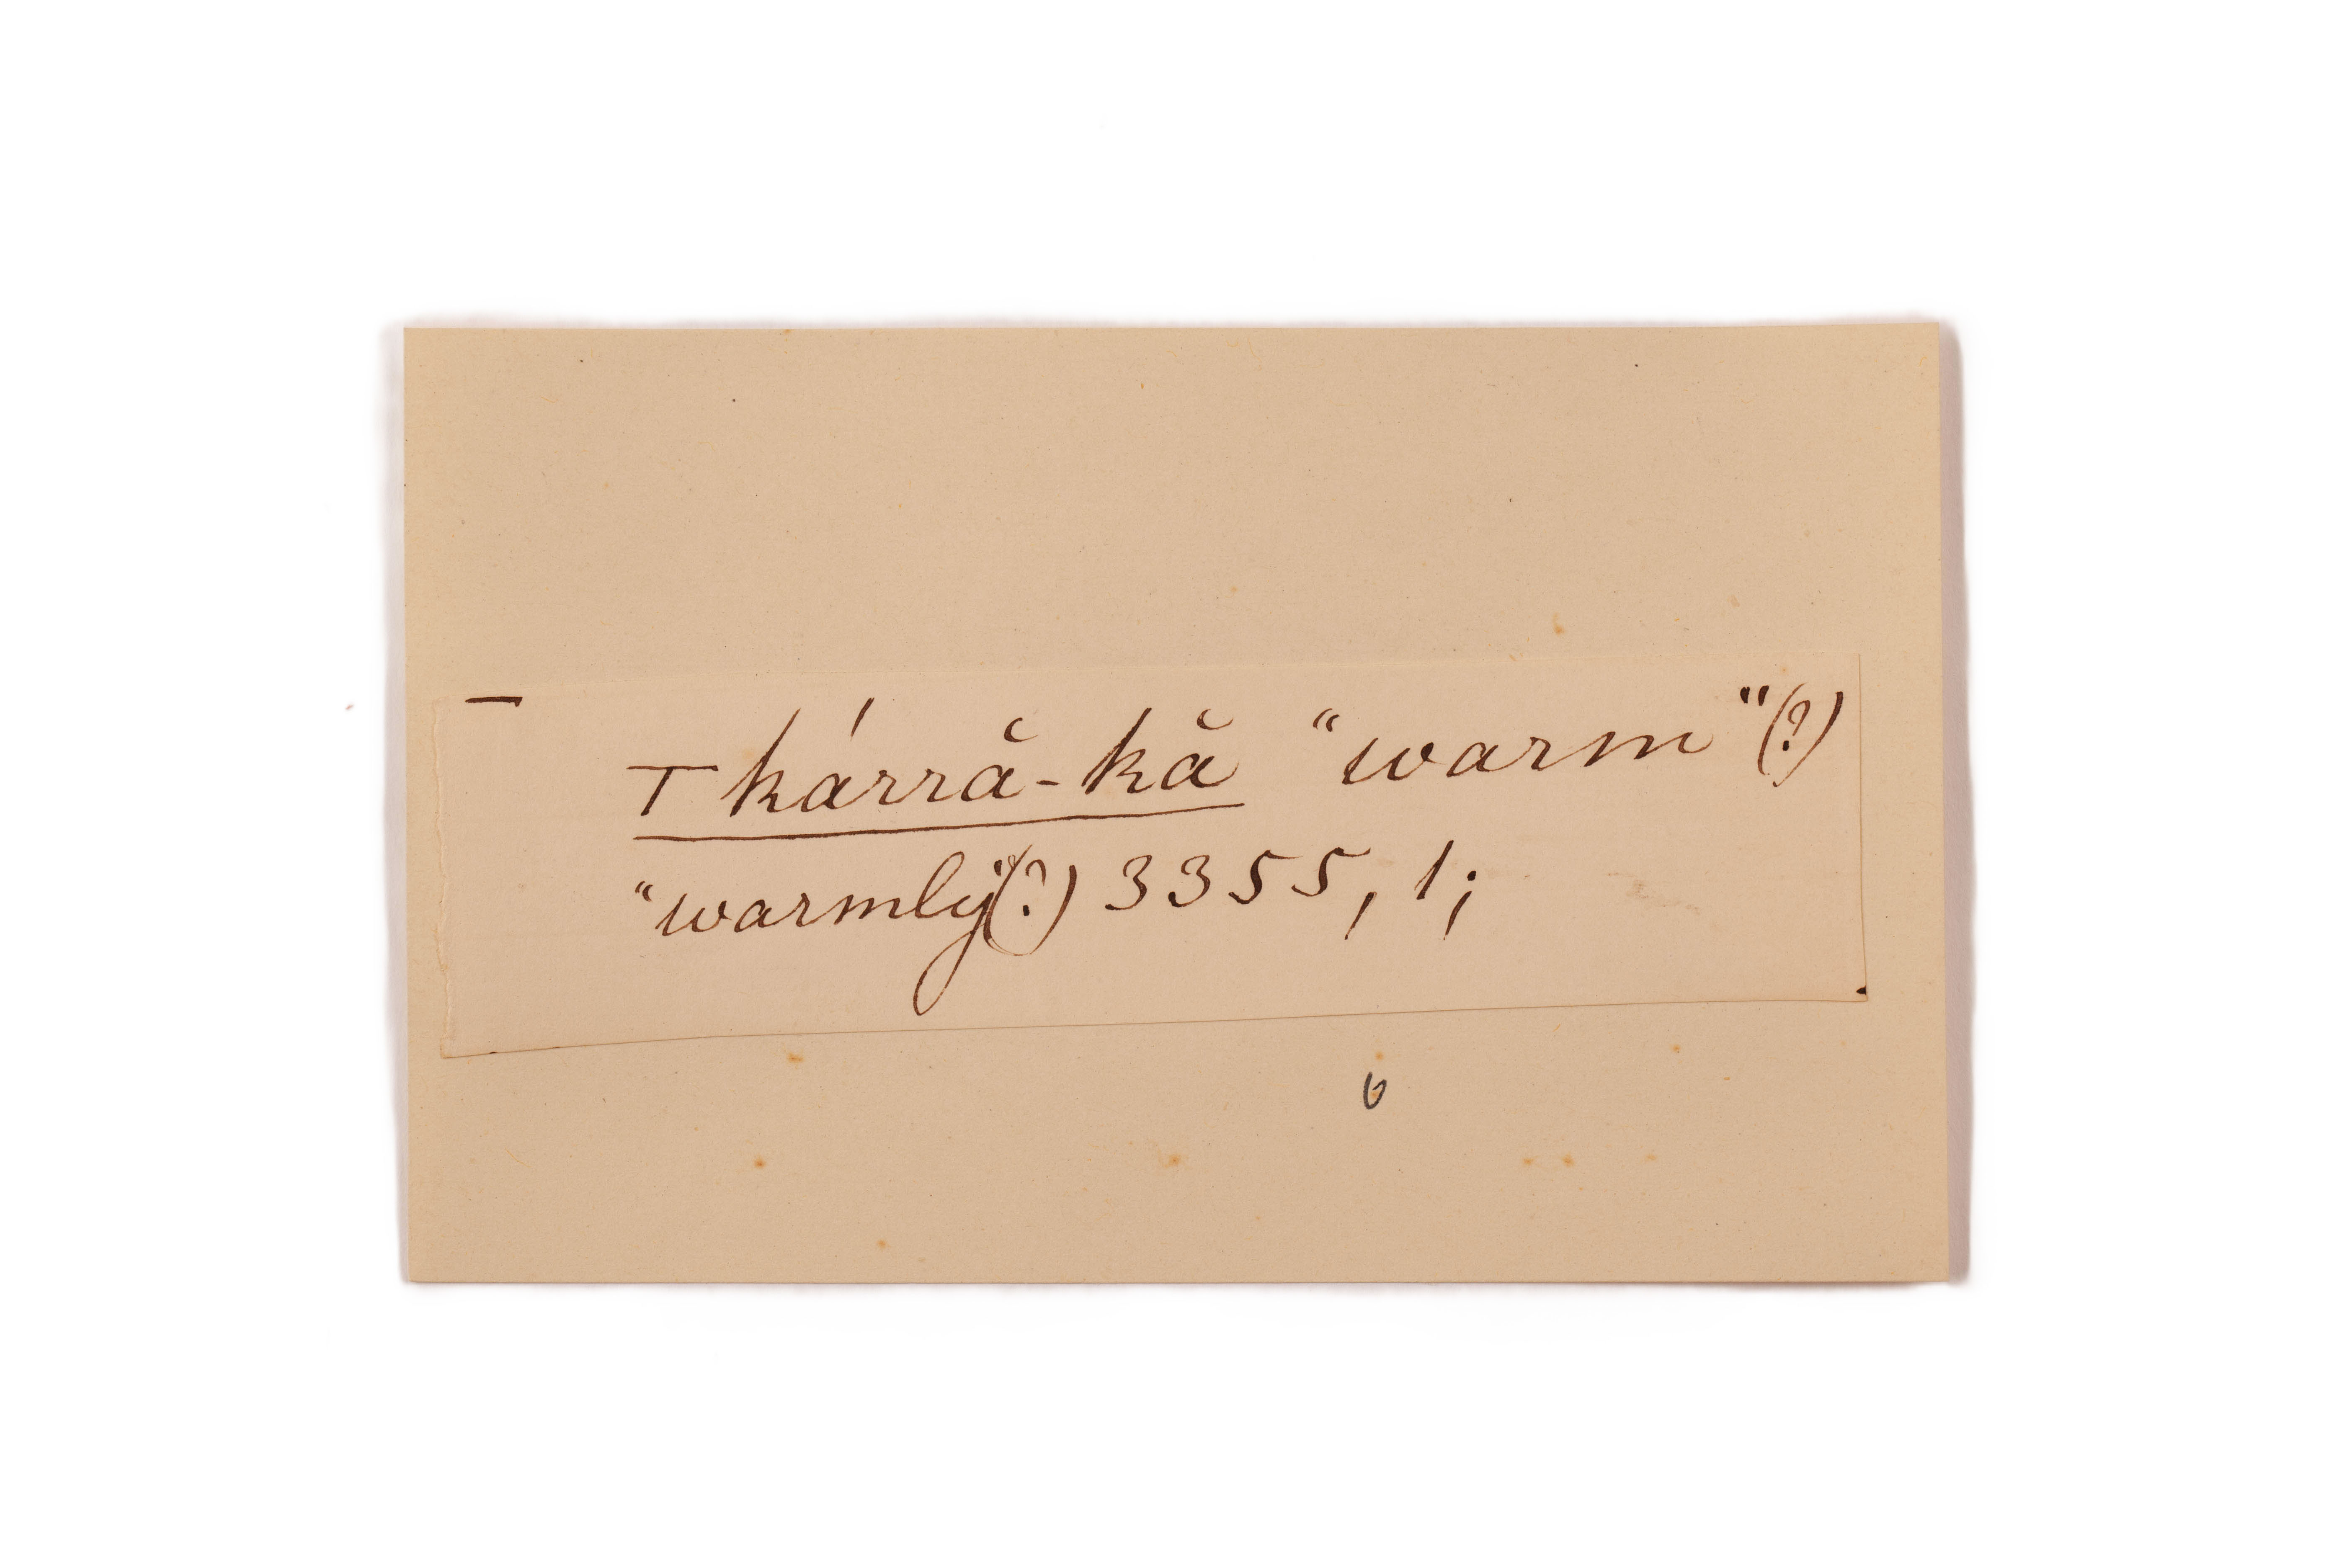 ⊤ kárră-kă “warm”(?)
“warmly”(?) 3355, 1;